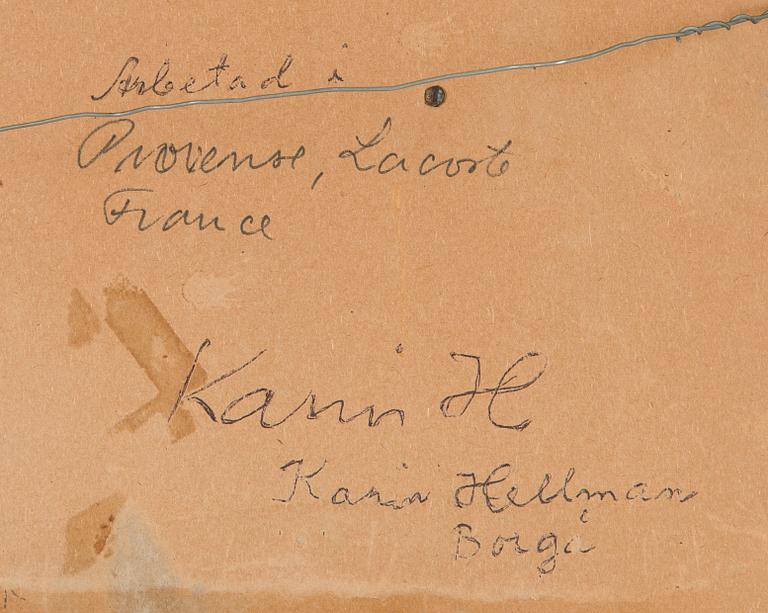 Arbetad i
Provense, Lacoste
France
Karin H
Karin Hellman
Borgå